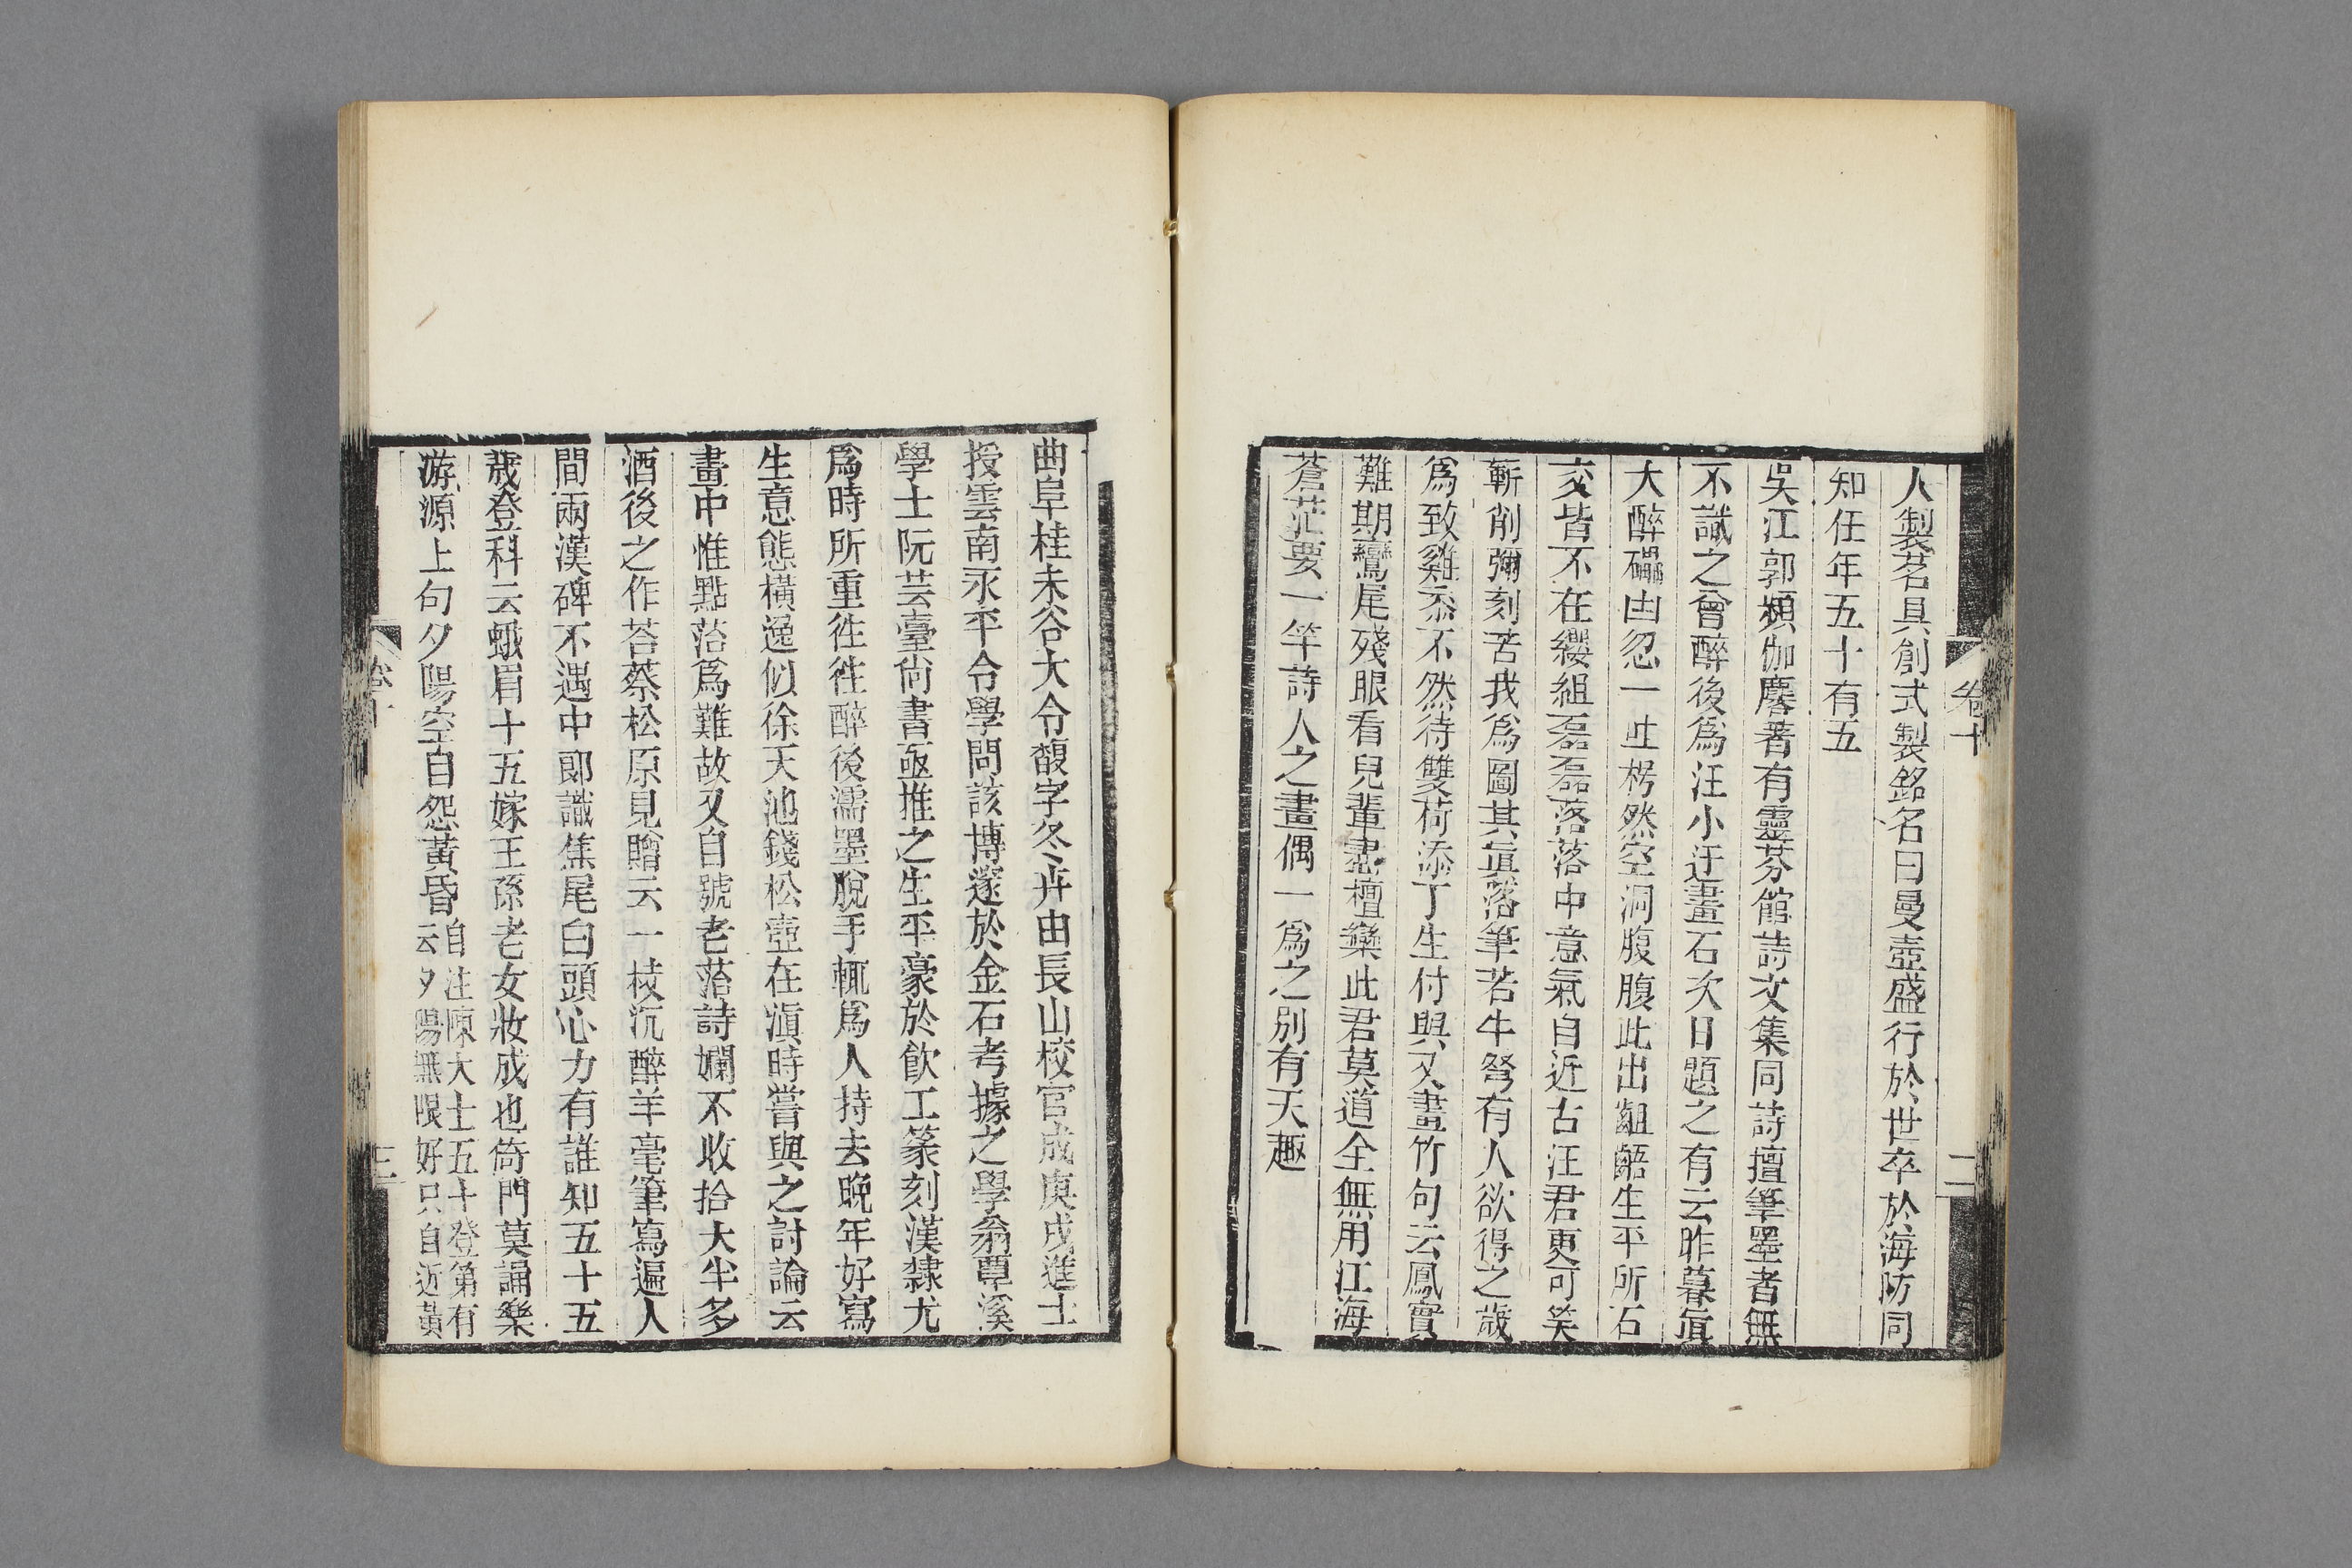 人製茗具創式製銘名曰曼壺盛行於世卒於海防同
知任年五十有五
吳江郭頻伽麐著有靈芬館詩文集同詩擅筆墨者無
不識之曾醉後爲汪小迂畫石次日題之有云昨暮眞
大醉礧凷忽一吐枵然空洞腹腹此出齟齬生平所石
交皆不在纓組磊磊落落中意氣自近古汪君更可笑
斬削彌刻苦我爲圖其眞落筆若牛弩有人欲得之歲
爲致雞黍不然待雙荷添丁生付與又畫竹句云鳳實
難期鸞尾殘眼看兒輩盡檀欒此君莫道全無用江海
蒼茫要一竿詩人之畫偶一爲之別有天趣
卷十
二
曲阜桂未谷大令馥字冬卉由長山校官成庚戌進士
授雲南永平令學問該博邃於金石考據之學翁覃溪
學士阮芸臺尙書亟推之生平豪於飮工篆刻漢隸尤
爲時所重徃徃醉後濡墨脫手輒爲人持去晚年好寫
生意態橫逸似徐天池錢松壺在滇時嘗與之討論云
畫中惟點菭爲難故又自號老菭詩嬾不收拾大半多
酒後之作荅蔡松原見贈云一枝沉醉羊毫筆寫遍人
間兩漢碑不遇中郞識焦尾白頭心力有誰知五十五
歲登科云蛾眉十五嫁王孫老女妝成也倚門莫誦樂
游源上句夕陽空自怨黃昏
自注陳大士五十登第有
云夕陽無限好只自近黃
卷十
三